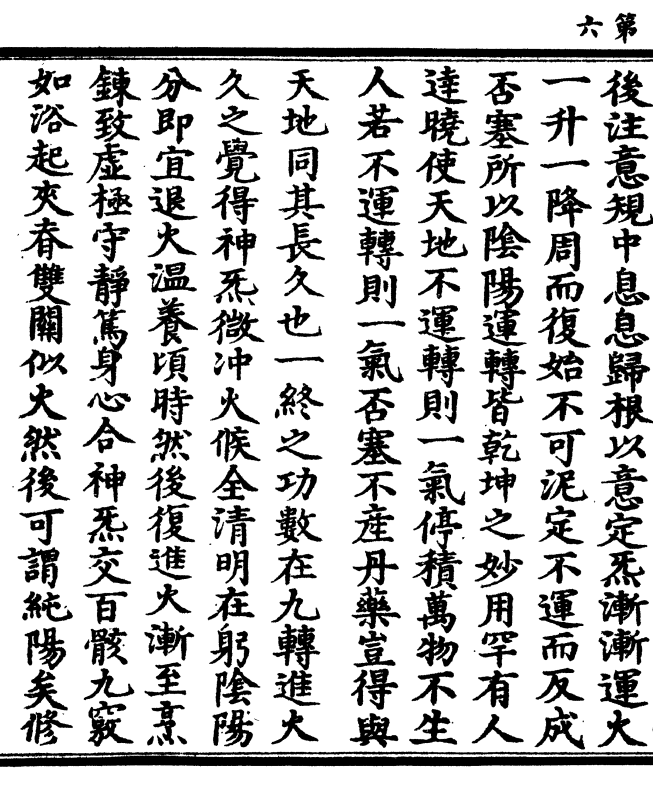 第六
後注意規中息息歸根以意定炁漸漸運火
一升一降周而復始不可泥定不運而反成
否塞所以陰陽運轉皆乾坤之妙用罕有人
逹曉使天地不運轉則一氣停積萬物不生
人若不運轉則一氣否塞不産丹藥豈得與
天地同其長久也一終之功數在九轉進火
久之覺得神炁微冲火候全清明在躬陰陽
分即宜退火温養頃時然後復進火漸至烹
鍊致虚極守靜篤身心合神炁交百骸九竅
如浴起夾脊雙關似火然後可謂純陽矣修